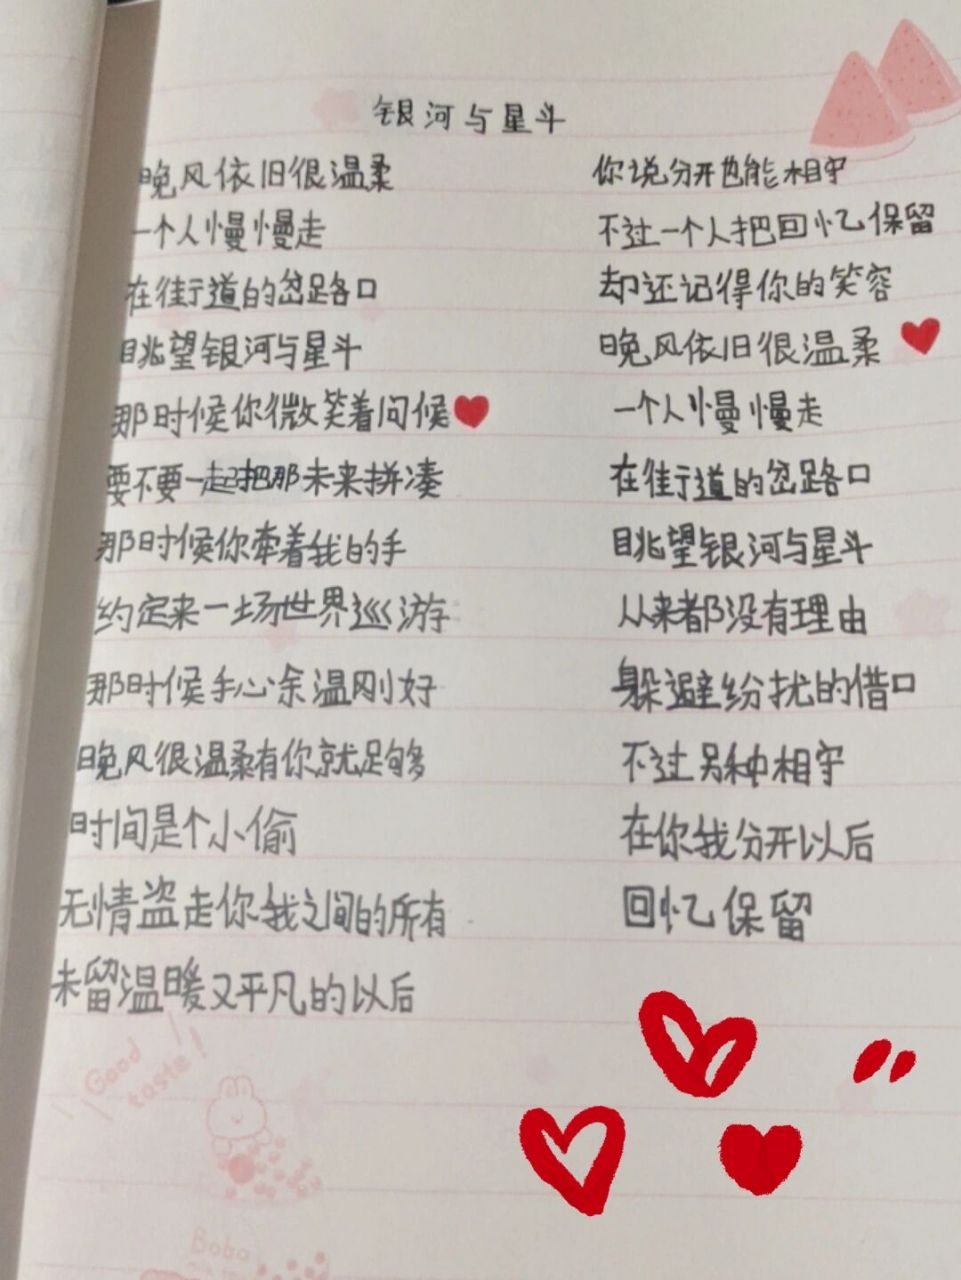 银河与星斗
晚风依旧很温柔
一个人慢慢走
在街道的岔路口
眺望银河与星斗
那时候你微笑着问候
要不要一起把那未来拼凑
那时候你牵着我的手
约定来一场世界巡游
那时候手心余温刚好
晚风很温柔有你就足够
时间是个小偷
无情盗走你我之间的所有
未留温暖又平凡的以后
你说分开也能相守
不过一个人把回忆保留
却还记得你的笑容
晚风依旧很温柔
一个人慢慢走
在街道的岔路口
眺望银河与星斗
从来都没有理由
躲避纷扰的借口
不过另种相守
在你我分开以后
回忆保留
Good
taste!
Boba